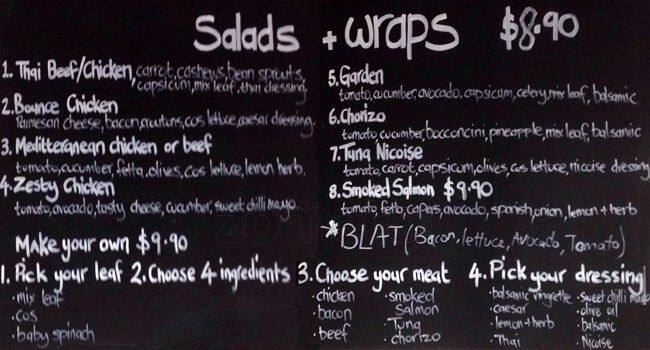 Salads + wraps $8.90
1. Thai Beef/Chicken, carrot, cashews, bean sprouts,
capsicum, mix leaf, thai dressing.
2. Bounce Chicken
Parmesan cheese, bacon, croutons, cos lettuce, caesar dressing.
3. Mediterranean chicken or beef
tomato, cucumber, fetta, olives, cos lettuce, lemon herb.
4. Zesty Chicken
tomato, avocado, tasty cheese, cucumber, sweet chilli mayo.
5. Garden
tomato, cucumber, avocado, capsicum, celery, mix leaf, balsamic
6. Chorizo
tomato, cucumber, bocconcini, pineapple, mix leaf, balsamic
7. Tuna Nicoise
tomato, carrot, capsicum, olives, cos lettuce, nicoise dressing
8. Smoked Salmon $9.90
tomato, fetta, capers, avocado, spanish onion, lemon + herb
* BLAT (Bacon, lettuce, Avocado, Tomato)
Make your own $9.90
1. Pick your leaf
• mix leaf
• cos
• baby spinach
2. Choose 4 ingredients
3. Choose your meat
• chicken
• bacon
• beef
• smoked
Salmon
• Tuna
• chorizo
4. Pick your dressing
• balsamic vinigrette
• caesar
• lemon + herb
• Thai
• sweet chilli mayo
• olive oil
• balsamic
• Nicoise